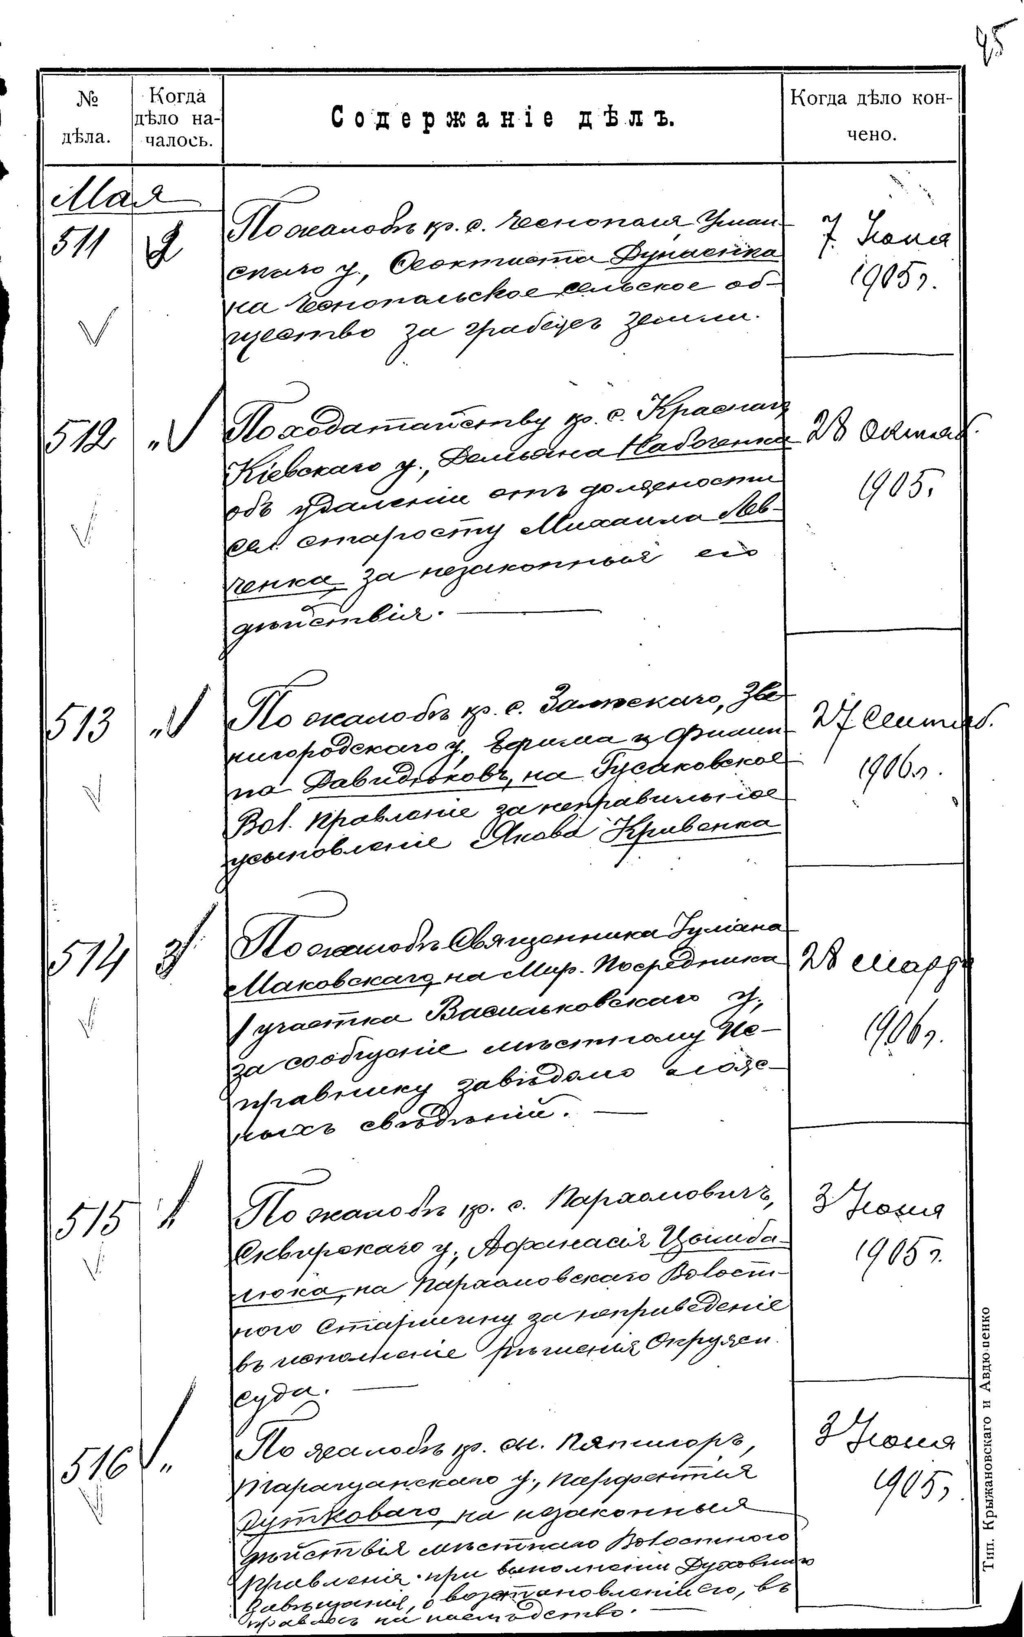 45
№ дѣла.
Когда дѣло на-
чалось.
Содержаніе дѣлъ.
Когда дѣло кон-
чено.
Мая
511 2
По жалобѣ кр. с. Чеснополя Уман-
скаго у., Ѳеоктиста Дунаенка
на Чеснопольское сельское об-
щество за грабежъ земли.
7 Іюня
1905 г.
512 "
По ходатайству кр. с.
Кіевскаго у., Демьяна Набоченка
объ удаленіи отъ должности
сел. старосту Михаила Лев-
ченка, за незаконныя его
дѣйствія.
28 октяб.
1905.
513 "
По жалобѣ кр. с. Зве-
нигородскаго у., и Филип-
па Давидюковъ, на Гусаковское
Вол. правленіе за неправильное
усыновленіе Якова Кривенка
27 Сентяб.
1906 г.
514 3
По жалобѣ Священника Іуліана
Маковскаго, на Мир. Посредника
1 участка Васильковскаго у.,
за сообщеніе мѣстному Ис-
правнику завѣдомо лож-
ныхъ свѣдѣній.
28 марта
1906 г.
515 "
По жалобѣ кр. с. Пархомовичъ,
Сквирскаго у., Афанасія Цымба-
люка, на Пархомовскаго Волост-
ного Старшину за неприведеніе
въ исполненіе рѣшенія Окружн.
суда.
3 Іюня
1905 г.
516 "
По жалобѣ кр. м. Пятигоръ,
Таращанскаго у., Парфентія
Дутковаго, на незаконныя
дѣйствія мѣстнаго Волостного
Правленія при выполненіи Духовнаго
Завѣщанія, о возстановленіи его, въ
правахъ на наслѣдство.
3 Іюня
1905 г.
Тип. Крыжановскаго и Авдюшенко